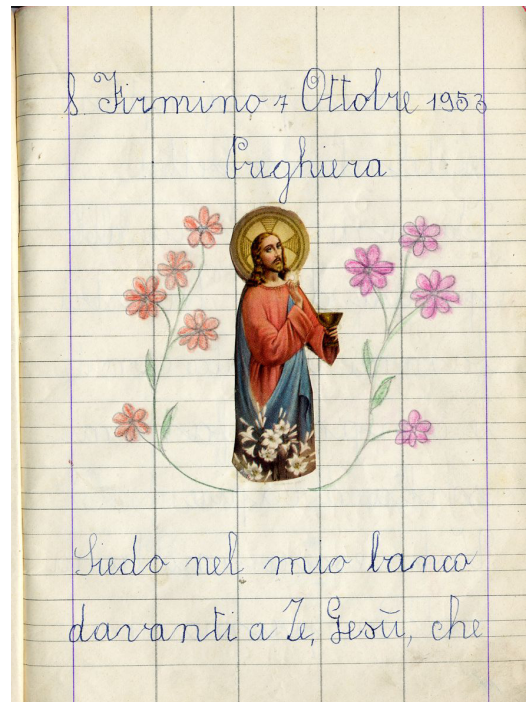 S Firmino 7 Ottobre 1953
Preghiera
Siedo nel mio banco
davanti a Te, Gesù, che